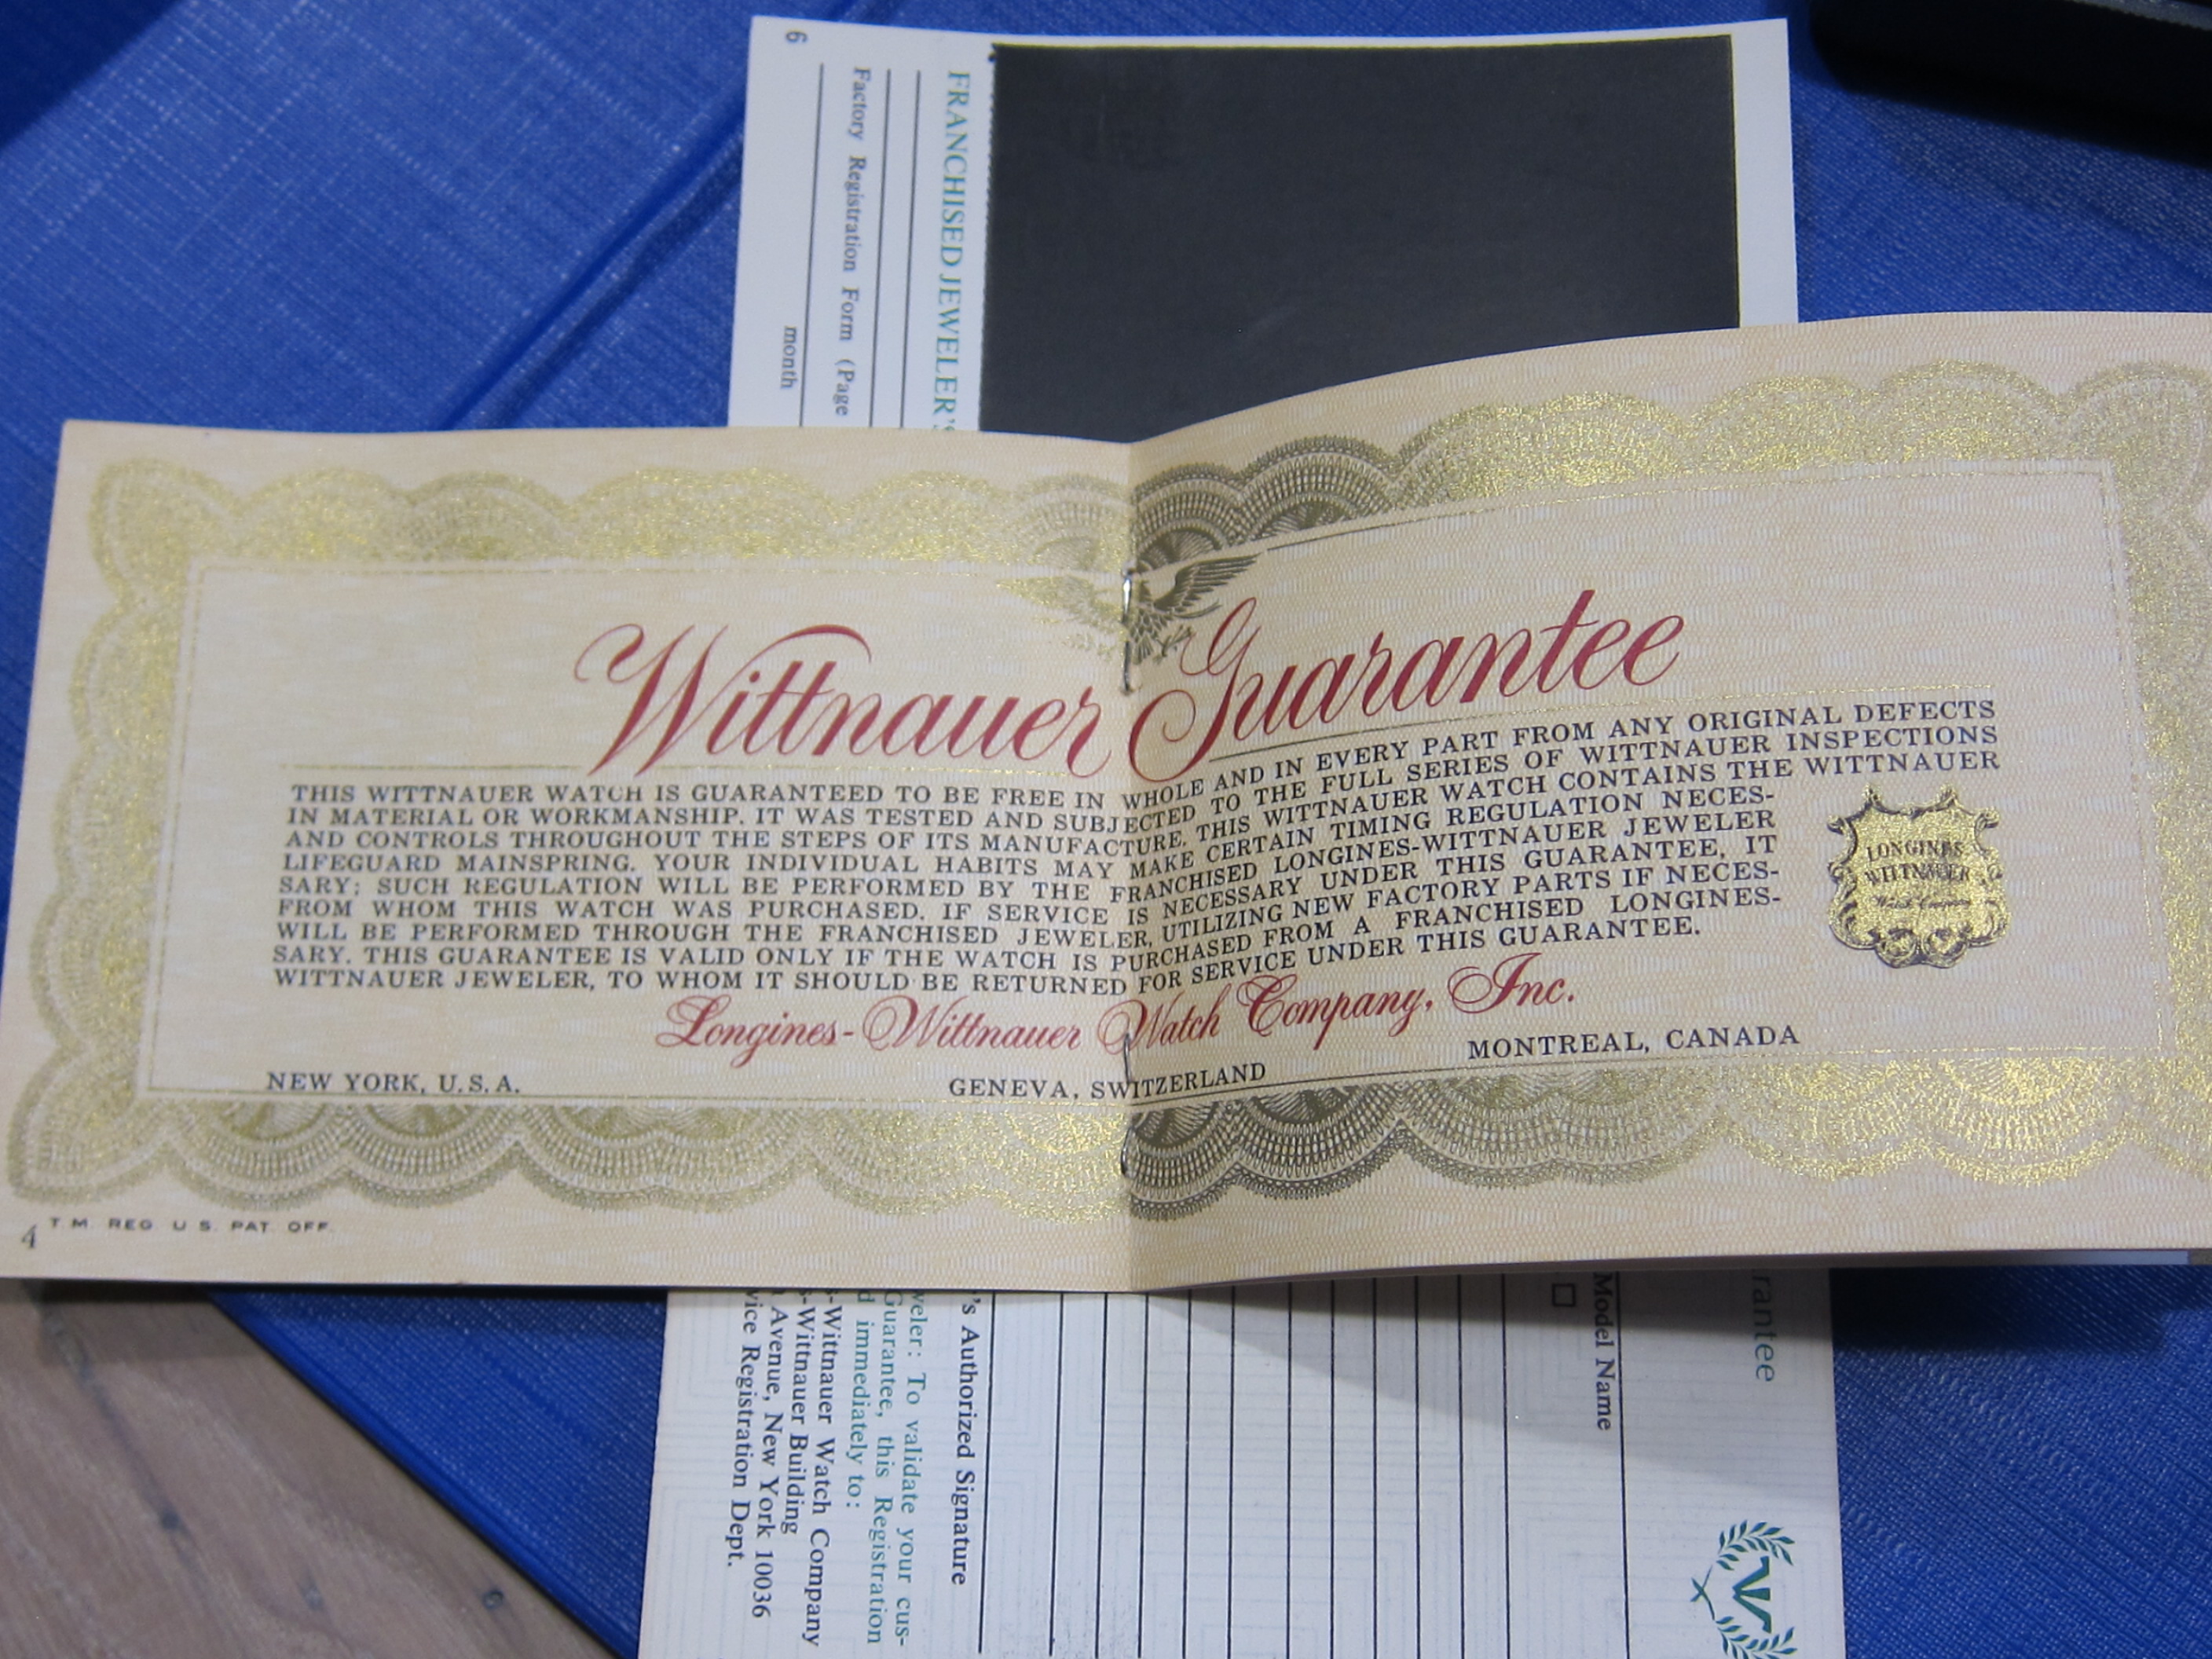 6
month
Factory Registration Form (Page
FRANCHISED JEWELER'S
Wittnauer Guarantee
THIS WITTNAUER WATCH IS GUARANTEED TO BE FREE IN WHOLE AND IN EVERY PART FROM ANY ORIGINAL DEFECTS
IN MATERIAL OR WORKMANSHIP. IT WAS TESTED AND SUBJECTED TO THE FULL SERIES OF WITTNAUER INSPECTIONS
AND CONTROLS THROUGHOUT THE STEPS OF ITS MANUFACTURE. THIS WITTNAUER WATCH CONTAINS THE WITTNAUER
LIFEGUARD MAINSPRING. YOUR INDIVIDUAL HABITS MAY MAKE CERTAIN TIMING REGULATION NECES-
SARY; SUCH REGULATION WILL BE PERFORMED BY THE FRANCHISED LONGINES-WITTNAUER JEWELER
FROM WHOM THIS WATCH WAS PURCHASED. IF SERVICE IS NECESSARY UNDER THIS GUARANTEE, IT
WILL BE PERFORMED THROUGH THE FRANCHISED JEWELER, UTILIZING NEW FACTORY PARTS IF NECES-
SARY. THIS GUARANTEE IS VALID ONLY IF THE WATCH IS PURCHASED FROM A FRANCHISED LONGINES-
WITTNAUER JEWELER, TO WHOM IT SHOULD BE RETURNED FOR SERVICE UNDER THIS GUARANTEE.
LONGINES
WITTNAUER
Watch Company
Longines-Wittnauer Watch Company, Inc.
NEW YORK, U.S.A. GENEVA, SWITZERLAND MONTREAL, CANADA
T.M. REG. U.S. PAT. OFF.
4
rantee
Model Name
's Authorized Signature
weler: To validate your cus-
Guarantee, this Registration
d immediately to:
-Wittnauer Watch Company
-Wittnauer Building
Avenue, New York 10036
vice Registration Dept.
W